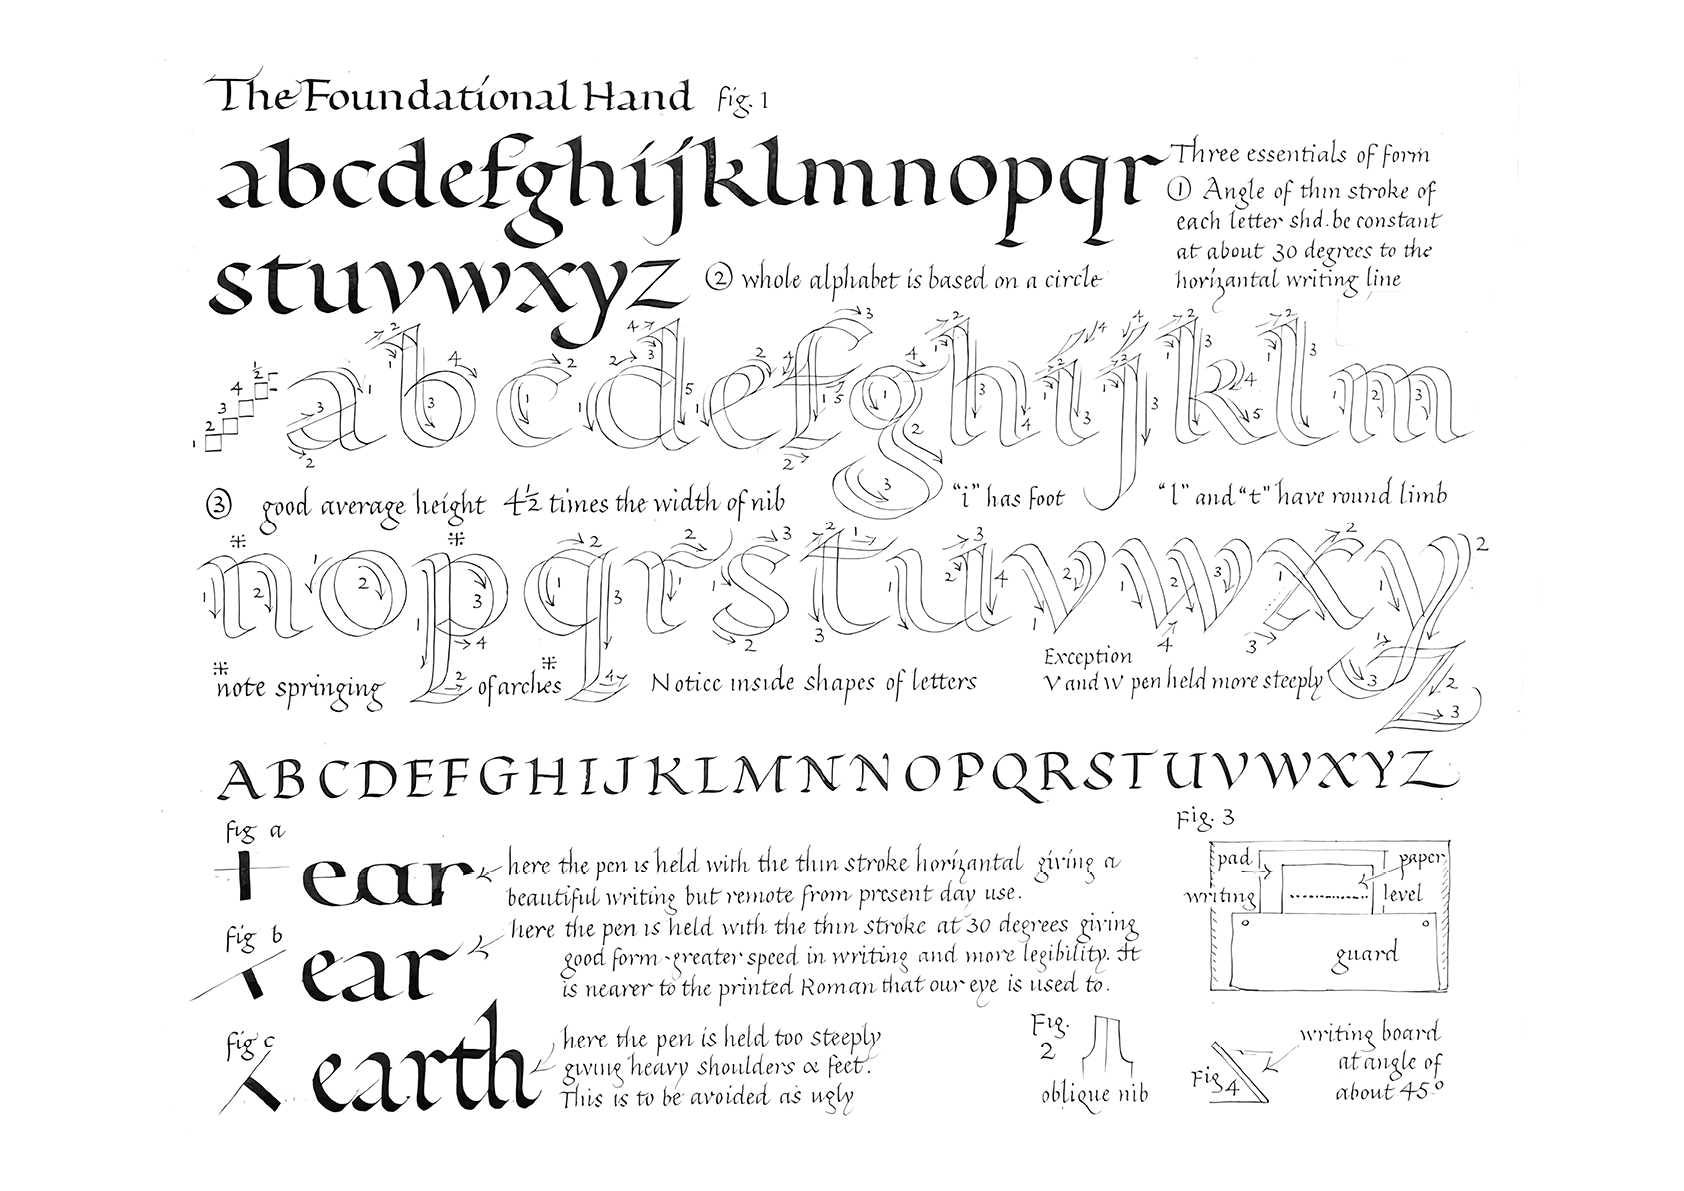 The Foundational Hand fig. 1
abcdefghijklmnopqr
stuvwxyz
Three essentials of form
① Angle of thin stroke of
each letter shd. be constant
at about 30 degrees to the
horizantal writing line
② whole alphabet is based on a circle
1 2 3 4 ½
abcdefghijklm
③ good average height 4½ times the width of nib
"i" has foot
"l" and "t" have round limb
nopqrstuvwxyz
note springing of arches
Notice inside shapes of letters
Exception
V and W pen held more steeply
ABCDEFGHIJKLMNNOPQRSTUVWXYZ
fig a
ear
here the pen is held with the thin stroke horizantal giving a
beautiful writing but remote from present day use.
fig b
ear
here the pen is held with the thin stroke at 30 degrees giving
good form - greater speed in writing and more legibility. It
is nearer to the printed Roman that our eye is used to.
fig c
earth
here the pen is held too steeply
giving heavy shoulders & feet.
This is to be avoided as ugly
Fig.
2
oblique nib
Fig. 3
pad paper
writing level
guard
Fig 4
writing board
at angle of
about 45°